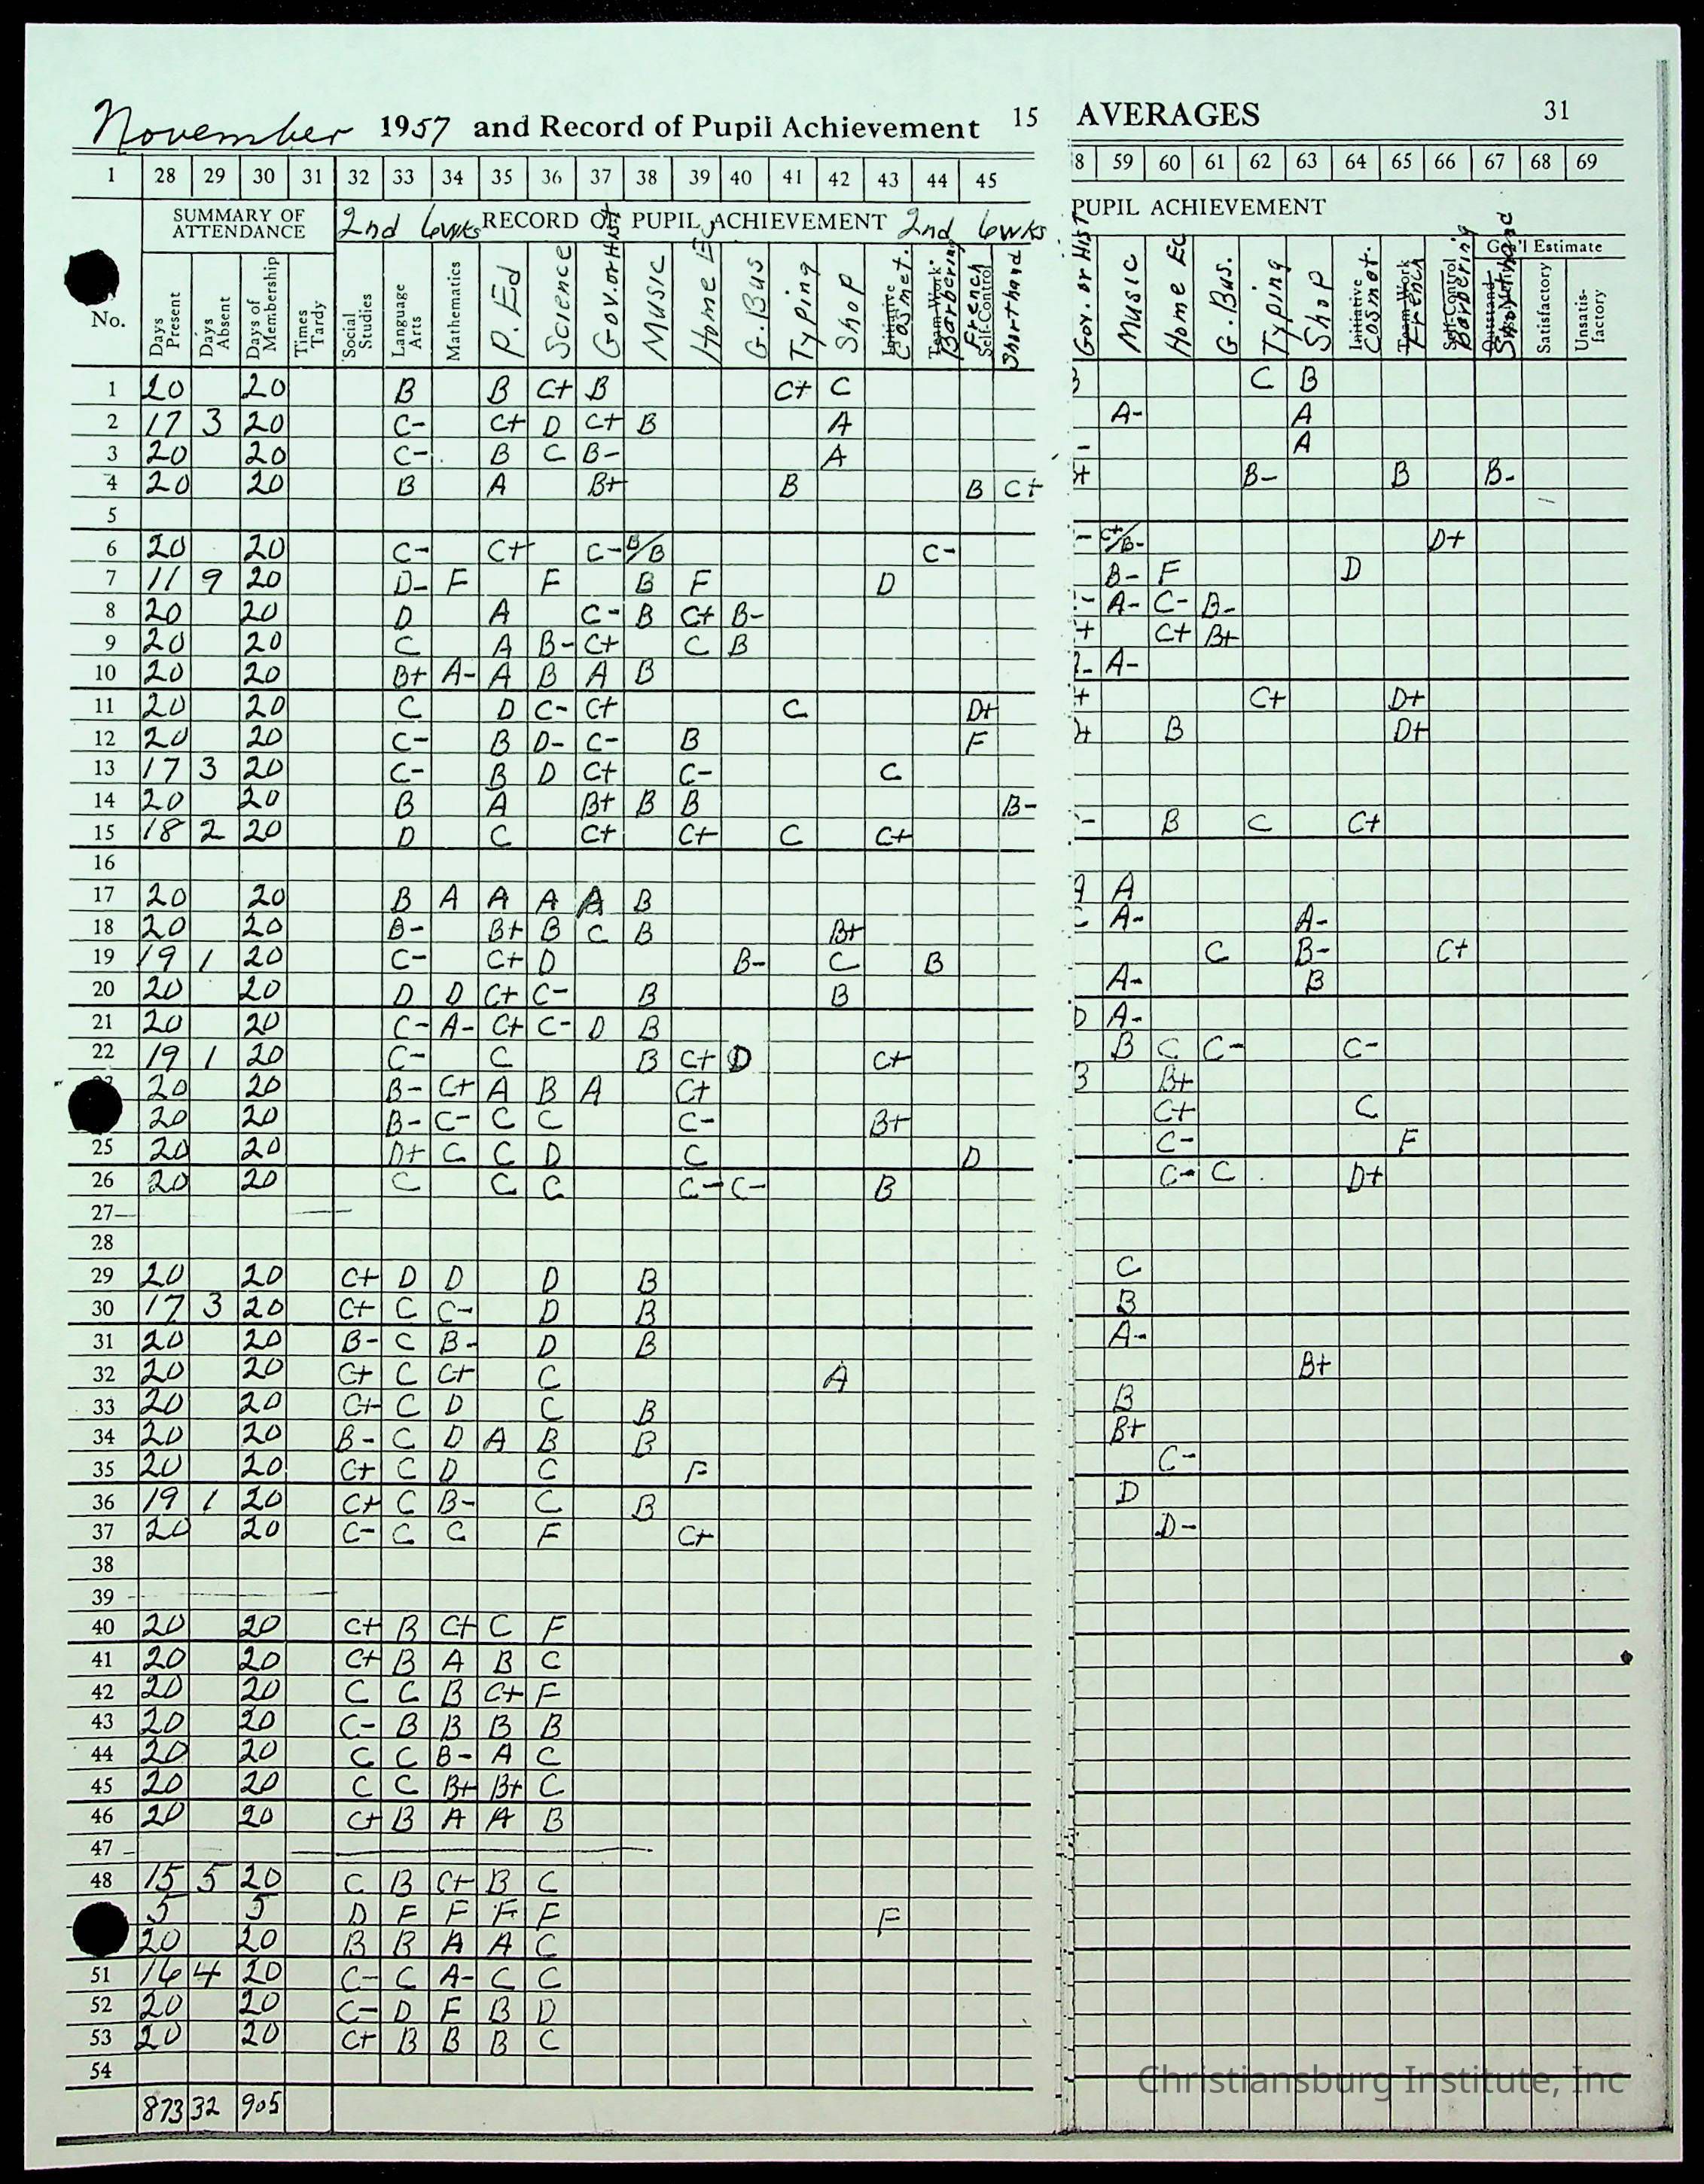 November 1957 and Record of Pupil Achievement 15 AVERAGES 31
1 28 29 30 31 32 33 34 35 36 37 38 39 40 41 42 43 44 45 8 59 60 61 62 63 64 65 66 67 68 69
SUMMARY OF ATTENDANCE 2nd 6wks RECORD OF PUPIL ACHIEVEMENT 2nd 6wks PUPIL ACHIEVEMENT
Gen'l Estimate
No. Days Present Days Absent Days of Membership Times Tardy Social Studies Language Arts Mathematics P. Ed Science Gov. or Hist Music Home Ec G. Bus Typing Shop Initiative Cosmet. Team Work Barbering French Self-Control Shorthand Gov. or Hist Music Home Ec G. Bus. Typing Shop Initiative Cosmot. Team Work French Self-Control Barbering Shorthand Satisfactory Unsatis-factory
1 20 20 B B C+ B C+ C C B
2 17 3 20 C- C+ D C+ B A A- A
3 20 20 C- B C B- A - A
4 20 20 B A B+ B B C+ + B- B B-
5
6 20 20 C- C+ C- B/B C- - C+/B- D+
7 11 9 20 D- F F B F D B- F D
8 20 20 D A C- B C+ B- - A- C- B-
9 20 20 C A B- C+ C B + C+ B+
10 20 20 B+ A- A B A B - A-
11 20 20 C D C- C+ C D+ + C+ D+
12 20 20 C- B D- C- B F + B D+
13 17 3 20 C- B D C+ C- C
14 20 20 B A B+ B B B-
15 18 2 20 D C C+ C+ C C+ - B C C+
16
17 20 20 B A A A A B A
18 20 20 B- B+ B C B B+ A- A-
19 19 1 20 C- C+ D B- C B C B- C+
20 20 20 D D C+ C- B B A- B
21 20 20 C- A- C+ C- D B D A-
22 19 1 20 C- C B C+ D C+ B C C- C-
20 20 B- C+ A B A C+ B B+
20 20 B- C- C C C- B+ C+ C
25 20 20 D+ C C D C D C- F
26 20 20 C C C C- C- B C- C D+
27
28
29 20 20 C+ D D D B C
30 17 3 20 C+ C C- D B B
31 20 20 B- C B- D B A-
32 20 20 C+ C C+ C A B+
33 20 20 C+ C D C B B
34 20 20 B- C D A B B B+
35 20 20 C+ C D C F C-
36 19 1 20 C+ C B- C B D
37 20 20 C- C C F C+ D-
38
39
40 20 20 C+ B C+ C F
41 20 20 C+ B A B C
42 20 20 C C B C+ F
43 20 20 C- B B B B
44 20 20 C C B- A C
45 20 20 C C B+ B+ C
46 20 20 C+ B A A B
47
48 15 5 20 C B C+ B C
5 5 D F F F F F
20 20 B B A A C
51 16 4 20 C- C A- C C
52 20 20 C- D F B D
53 20 20 C+ B B B C
54
873 32 905
Christiansburg Institute, Inc